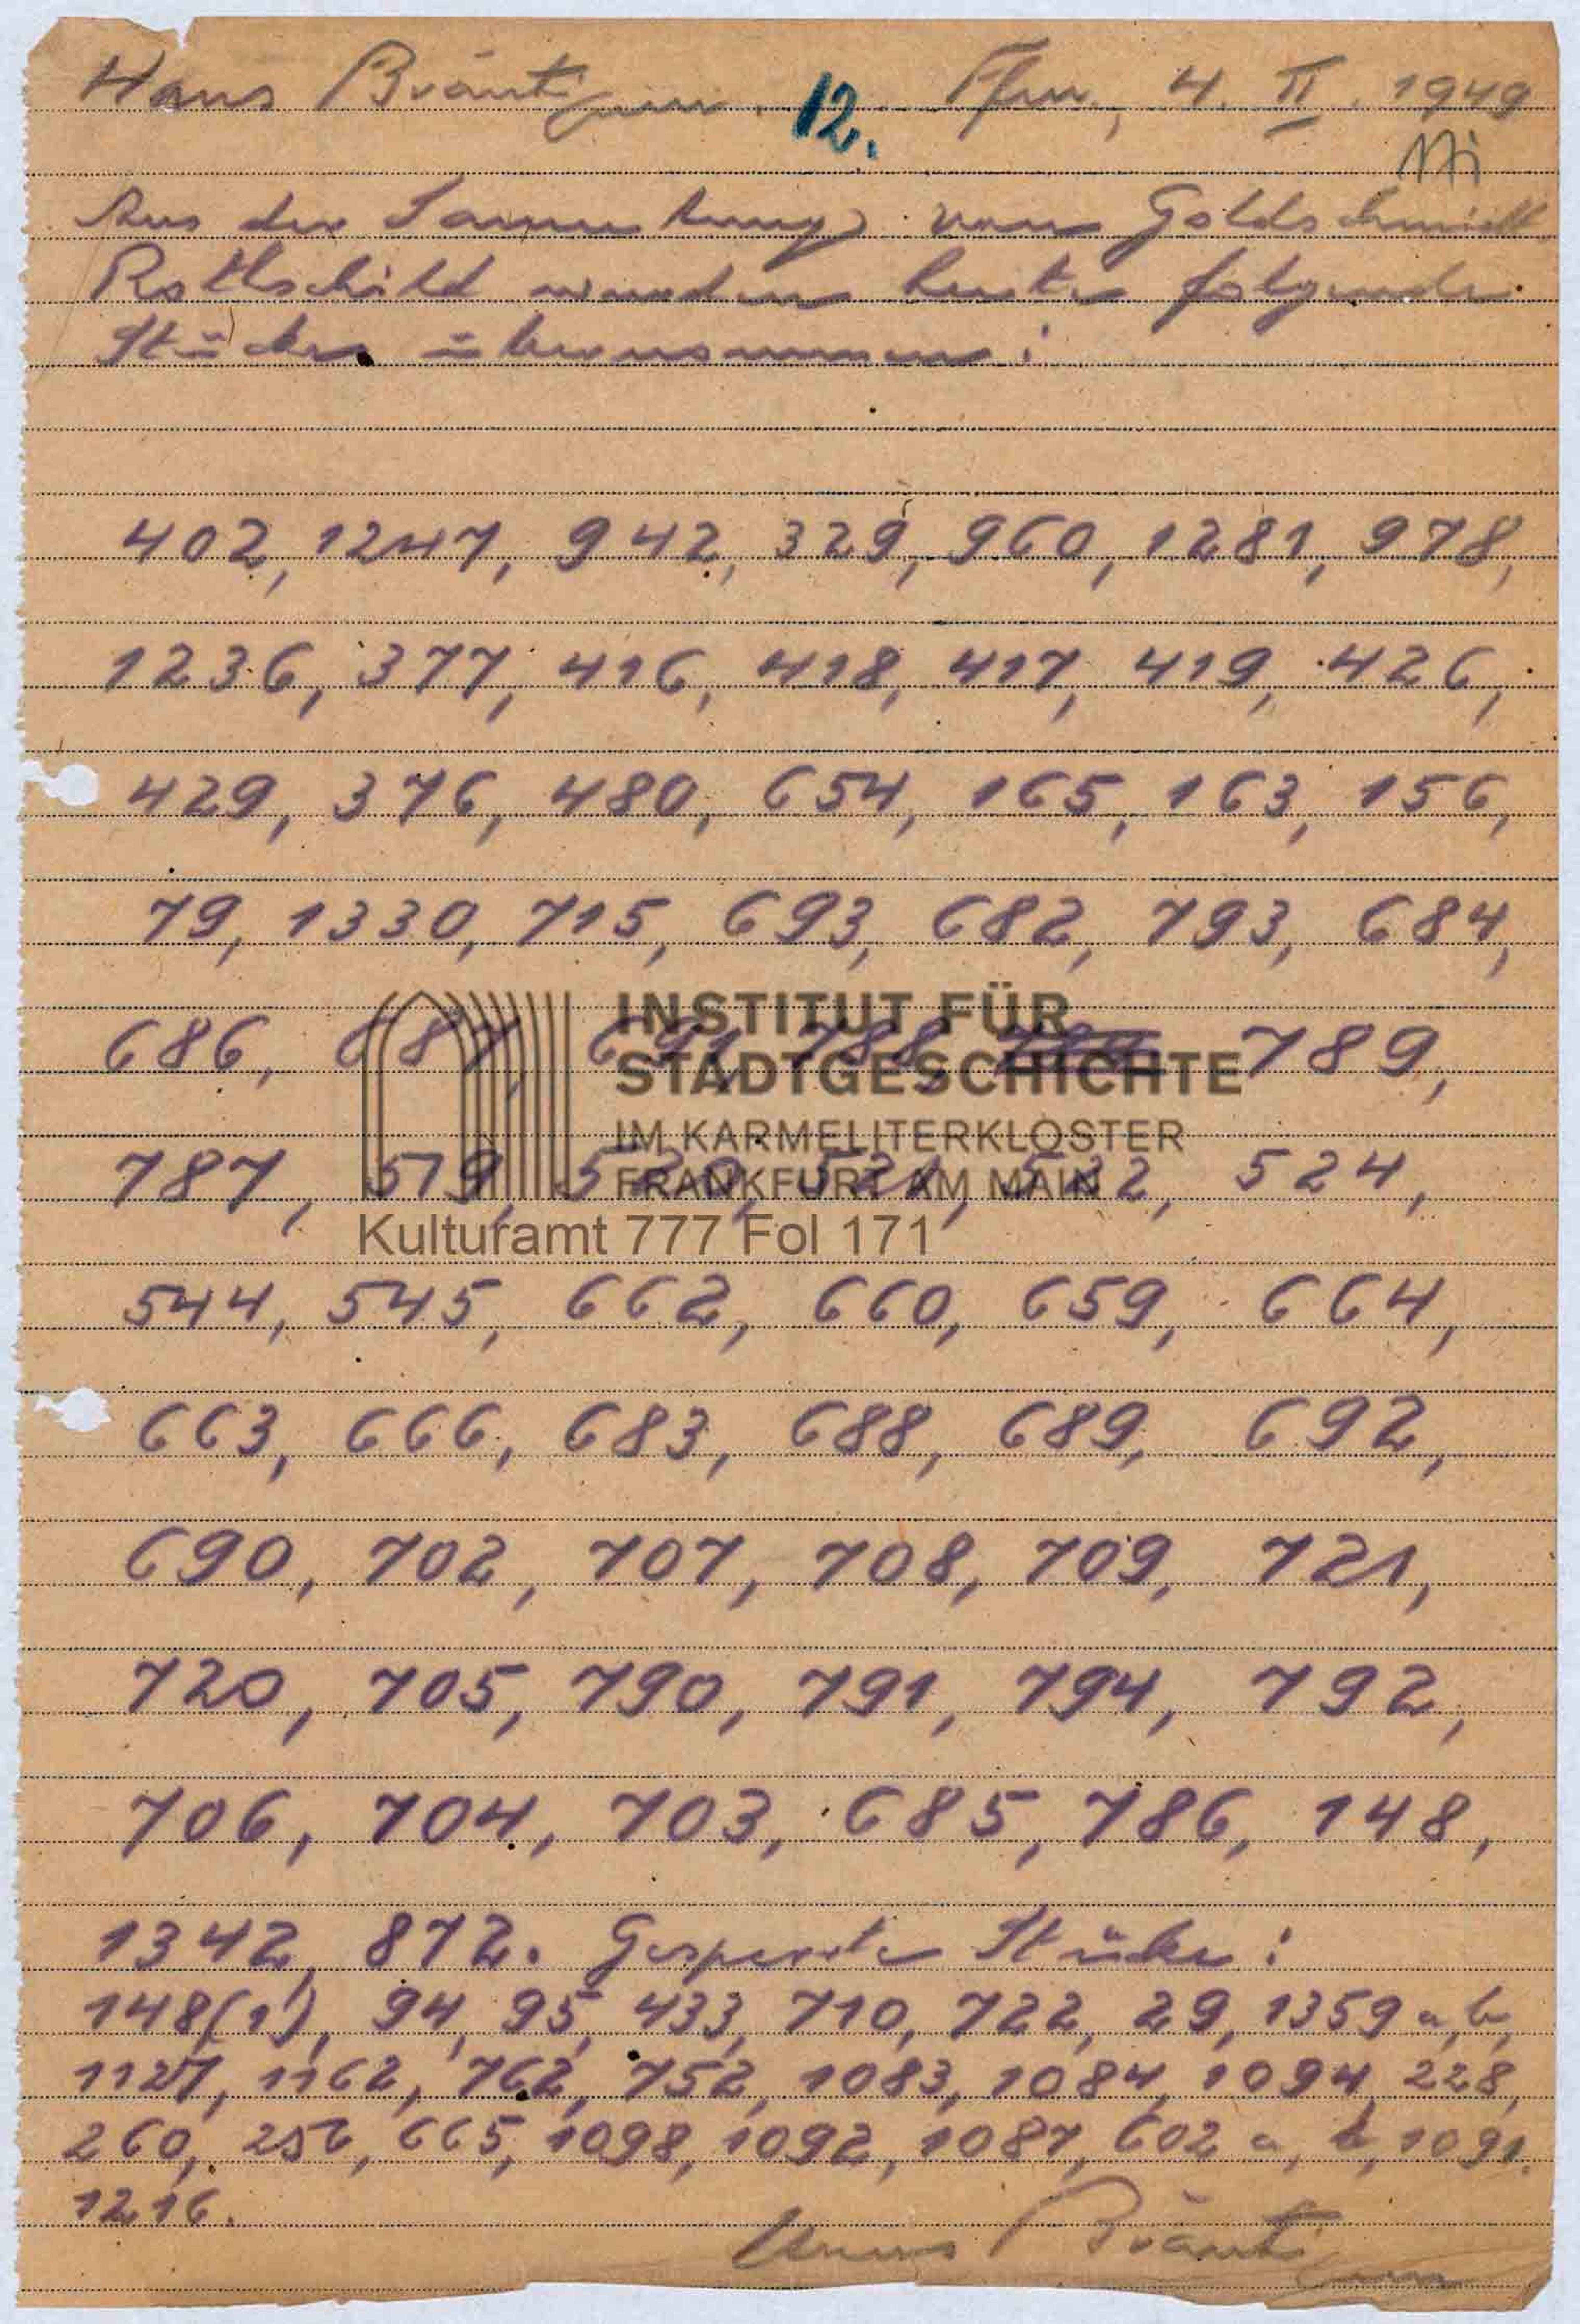 Hans Bräutigam. 12. Ffm., 4. II. 1949
Aus der Sammlung von Goldschmidt
Rothschild wurden heute folgende
Stücke übernommen:
402, 1247, 942, 329, 960, 1281, 978,
1236, 377, 416, 418, 417, 419, 426,
429, 376, 480, 654, 165, 163, 156,
79, 1330, 715, 693, 682, 793, 684,
686, 687, 691, 788, 789,
INSTITUT FÜR
STADTGESCHICHTE
IM KARMELITERKLOSTER
FRANKFURT AM MAIN
787, 519, 520, 521, 522, 524,
Kulturamt 777 Fol 171
544, 545, 662, 660, 659, 664,
663, 666, 683, 688, 689, 692,
690, 702, 707, 708, 709, 721,
720, 705, 790, 791, 794, 792,
706, 704, 703, 685, 786, 148,
1342, 872. Gesperrte Stücke:
148(1), 94, 95, 433, 710, 722, 29, 1359 a, b,
1127, 1162, 762, 752, 1083, 1084, 1094, 228,
260, 256, 665, 1098, 1092, 1087, 602 a, b, 1091.
1216.
Hans Bräutigam